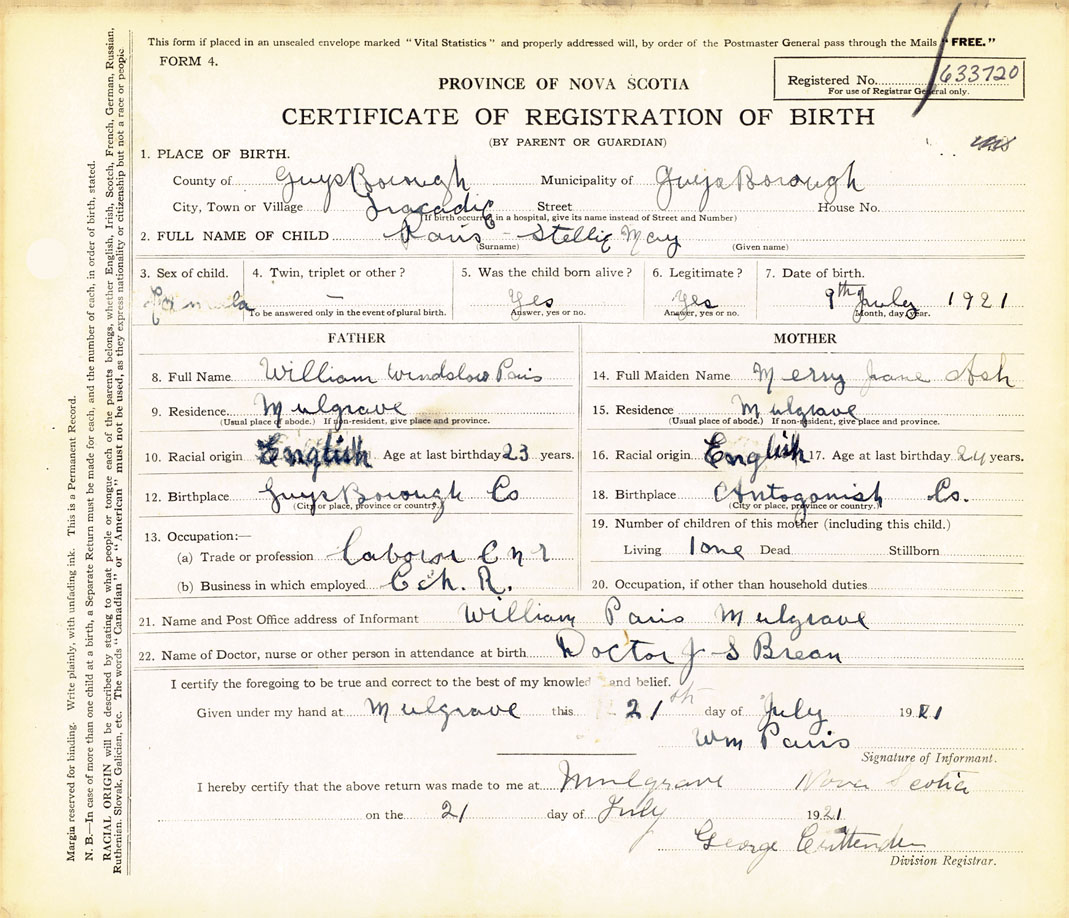 This form if placed in an unsealed envelope marked "Vital Statistics" and properly addressed will, by order of the Postmaster General pass through the Mails "FREE."
FORM 4.
Registered No. 633720
For use of Registrar General only.
PROVINCE OF NOVA SCOTIA
CERTIFICATE OF REGISTRATION OF BIRTH
(BY PARENT OR GUARDIAN)
1. PLACE OF BIRTH.
County of GuysBorough Municipality of GuysBorough
City, Town or Village Tracadie Street House No.
(If birth occurs in a hospital, give its name instead of Street and Number)
2. FULL NAME OF CHILD Paris - Stellie May
(Surname) (Given name)
3. Sex of child. 4. Twin, triplet or other? 5. Was the child born alive? 6. Legitimate? 7. Date of birth.
Female — Yes Yes 9th July 1921
To be answered only in the event of plural birth. Answer, yes or no. Answer, yes or no. Month, day, year.
FATHER MOTHER
8. Full Name William Windslow Paris 14. Full Maiden Name Mersy Jane Ash
9. Residence. Mulgrave 15. Residence Mulgrave
(Usual place of abode.) If non-resident, give place and province. (Usual place of abode.) If non-resident, give place and province.
10. Racial origin English Age at last birthday 23 years. 16. Racial origin English 17. Age at last birthday 24 years.
12. Birthplace GuysBorough Co 18. Birthplace Antogonish Co.
(City or place, province or country.) (City or place, province or country.)
13. Occupation:— 19. Number of children of this mother (including this child.)
(a) Trade or profession Laborer C n r Living 1one Dead Stillborn
(b) Business in which employed R. 20. Occupation, if other than household duties
21. Name and Post Office address of Informant William Paris Mulgrave
22. Name of Doctor, nurse or other person in attendance at birth Doctor J S Brean
I certify the foregoing to be true and correct to the best of my knowled and belief.
Given under my hand at Mulgrave this 21th day of July 1921
Wm Paris
Signature of Informant.
I hereby certify that the above return was made to me at Mulgrave Nova Scotia
on the 21 day of July 1921
George Crittenden
Division Registrar.
Margin reserved for binding. Write plainly, with unfading ink. This is a Permanent Record.
N. B.—In case of more than one child at a birth, a Separate Return must be made for each, and the number of each, in order of birth, stated.
RACIAL ORIGIN will be described by stating to what people or tongue each of the parents belongs, whether English, Irish, Scotch, French, German, Russian,
Ruthenian, Slovak, Galician, etc. The words "Canadian" or "American" must not be used, as they express nationality or citizenship but not a race or people